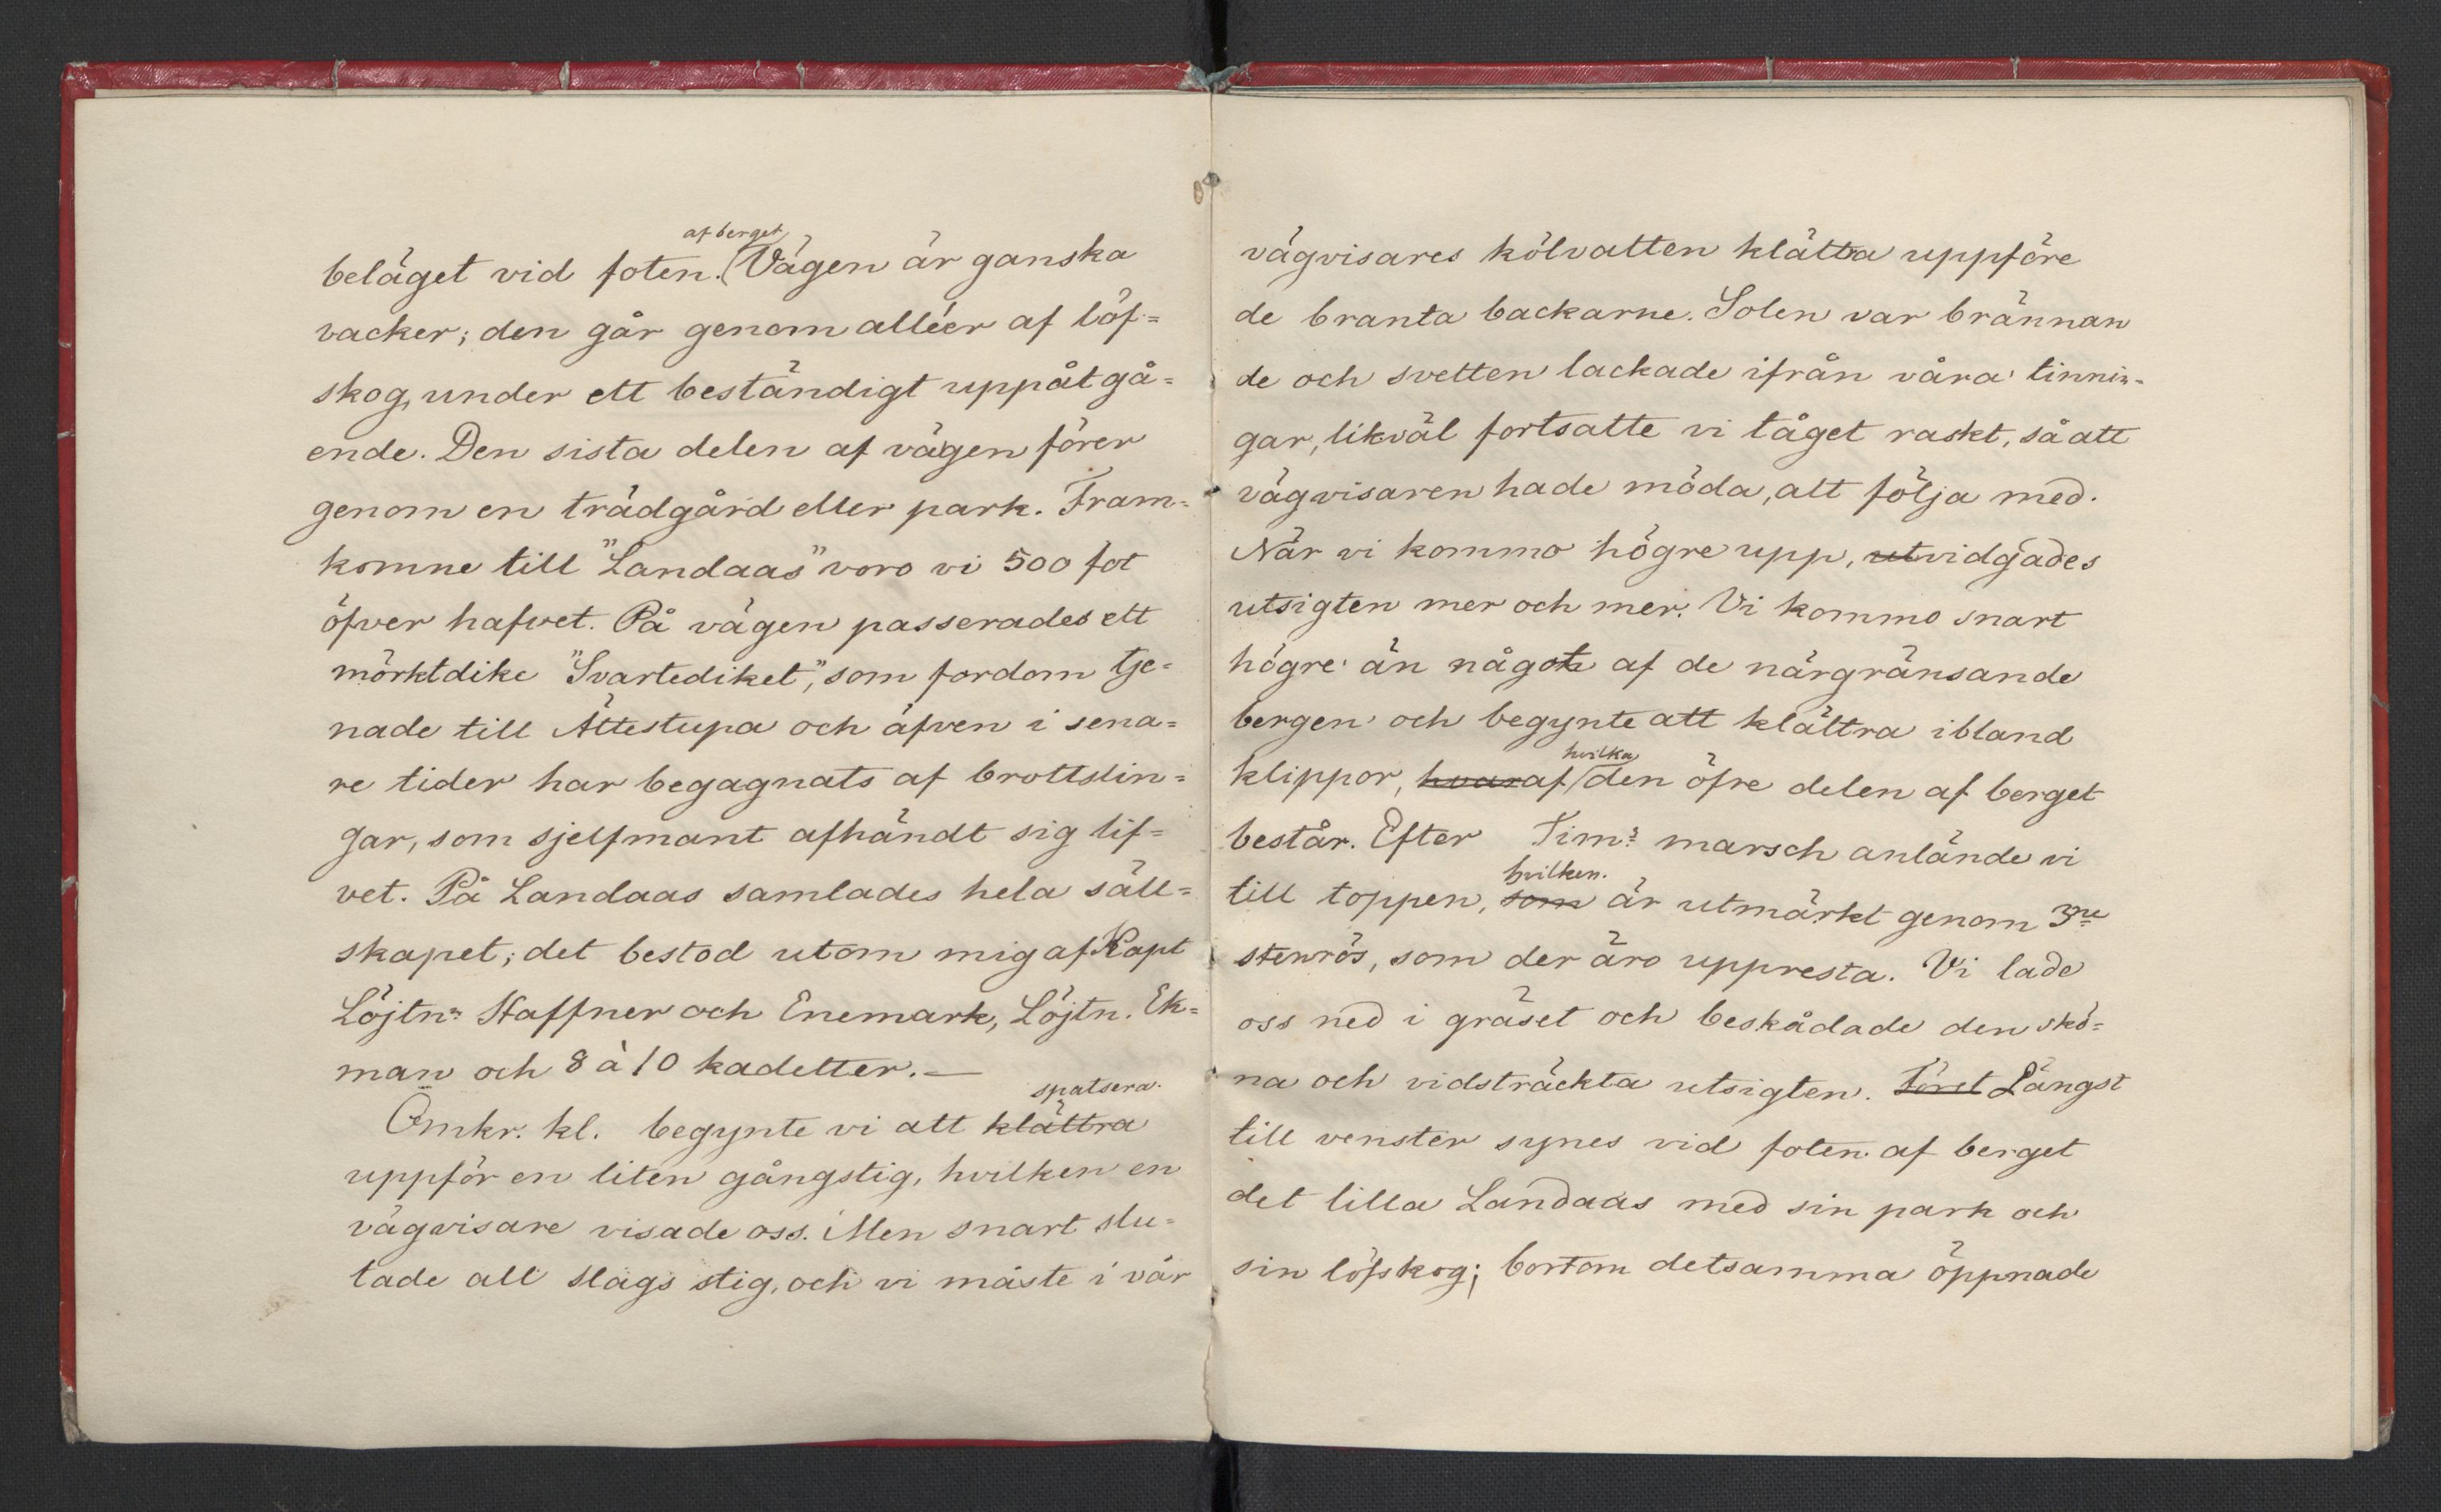 af berget
beläget vid foten. Vägen är ganska
vacker; den går genom alléer af löf=
skog, under ett beständigt uppåtgå=
ende. Den sista delen af vägen förer
genom en trädgård eller park. Fram=
komne till "Landaas" voro vi 500 fot
öfver hafvet. På vägen passerades ett
mörkt dike "Svartediket", som fordom tje=
nade till Ättestupa och äfven i sena=
re tider har begagnats af brottslin=
gar, som sjelfmant afhändt sig lif=
vet. På Landaas samlades hela säll=
skapet; det bestod utom mig af Kapt
Löjtnr Haffner och Enemark, Löjtn. Ek=
man och 8 à 10 kadetter. —
spatsera
Omkr. kl. begynte vi att klättra
uppför en liten gångstig, hvilken en
vägvisare visade oss. Men snart slu=
tade all slags stig, och vi måste i vår
vägvisares kölvatten klättra uppföre
de branta backarne. Solen var brännan
de och svetten lackade ifrån våra tinnin=
gar, likväl fortsatte vi tåget raskt, så att
vägvisaren hade möda, att följa med.
När vi kommo högre upp, utvidgades
utsigten mer och mer. Vi kommo snart
högre än något af de närgränsande
bergen och begynte att klättra ibland
hvilka
klippor, hvaraf den öfre delen af berget
består. Efter Timrs marsch anlände vi
hvilken
till toppen, som är utmärkt genom 3ne
stenrös, som der äro uppresta. Vi lade
oss ned i gräset och beskådade den skö=
na och vidsträckta utsigten. Längst
till venster synes vid foten af berget
det lilla Landaas med sin park och
sin löfskog; bortom detsamma öppnade